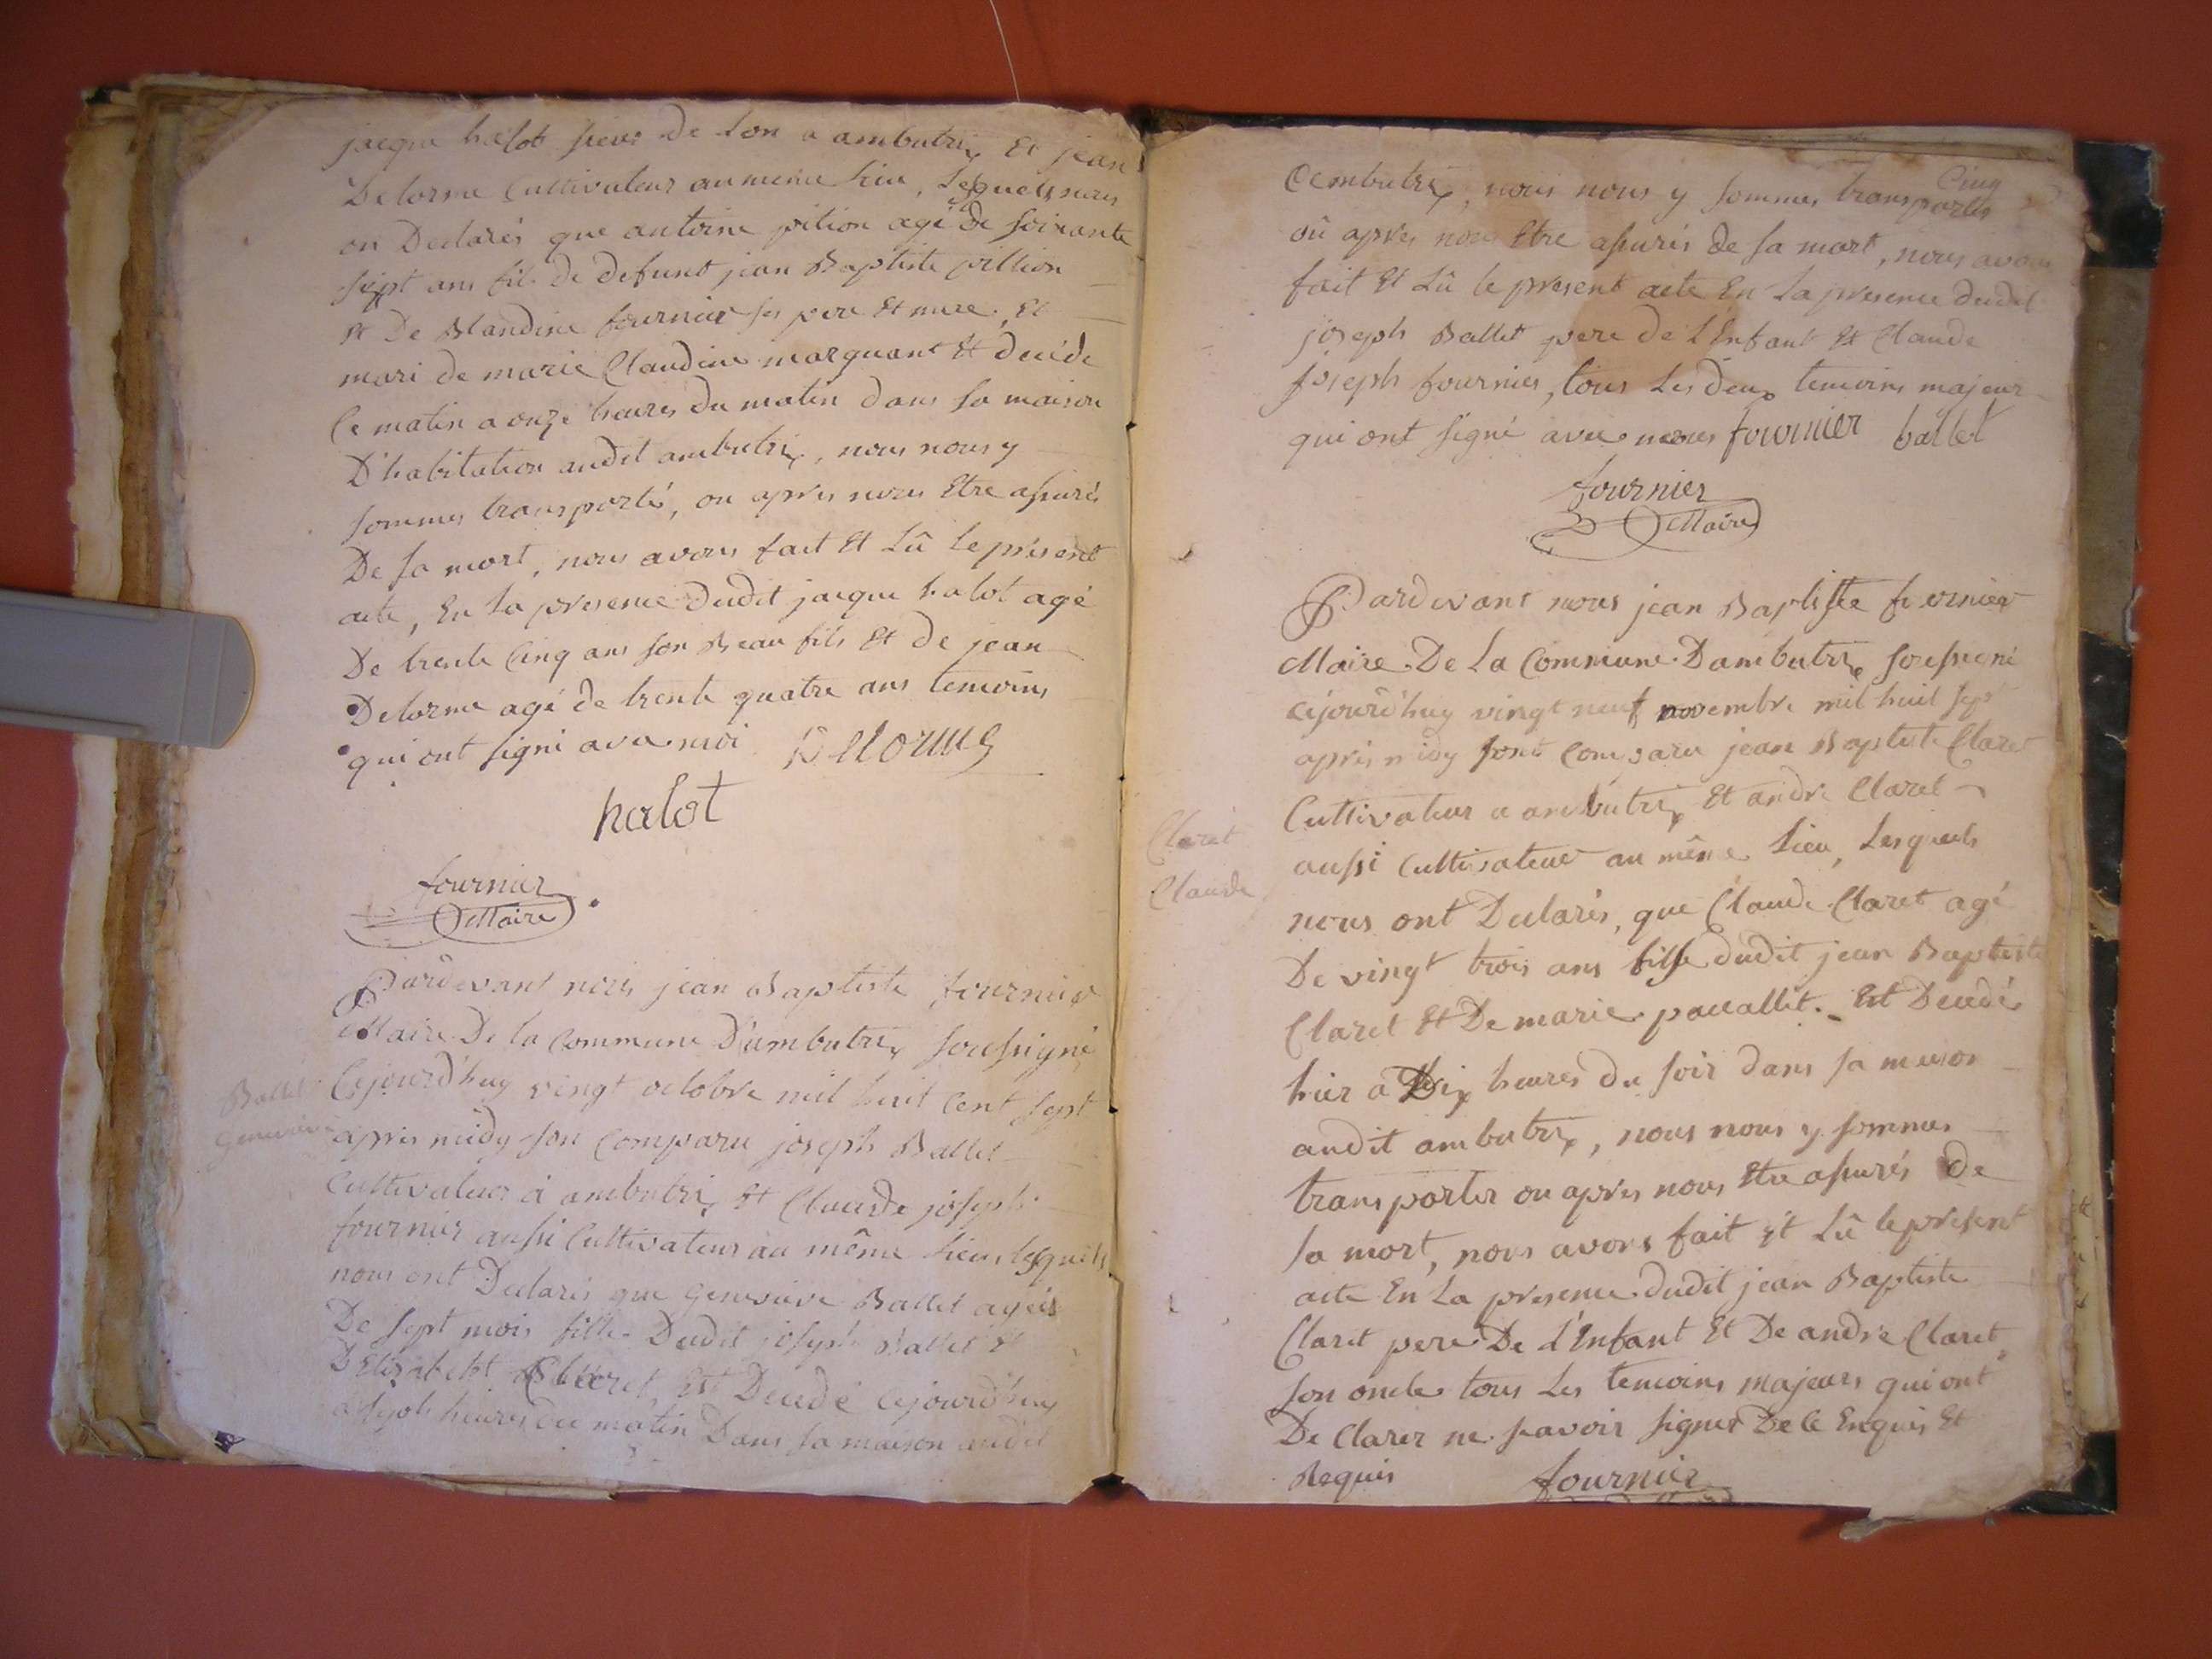 jacque halot de Lon a ambutrix Et jean
Delorme Cultivateur au meme lieu, Lesquels nous
on Declarés que antoine pition agé de soixante
sept ans fils de defunt jean Baptiste pittion
Et De Blandine fournier ses pere Et mere, Et
mari de marie Claudine marquant Et decéde
Ce matin a onze heures du matin dans sa maison
D'habitation audit ambutrix, nous nous y
sommes transporté, ou apres nous Etre assurés
De sa mort, nous avons fait Et Lû le présent
acte, En La presence dudit jacque halot agé
De trente Cinq ans son Beau fils Et de jean
Delorme agé de trente quatre ans temoins
qui ont signé avec moi Delorme
halot
fournier
Maire
Pardevant nous jean Baptiste fournier
Maire De la Commune D'ambutrix soussigné
Cejourd'huy vingt octobre mil huit Cent sept
Ballet
Genevieve
apres midy son Comparu joseph Ballet
Cultivateur à ambutrix Et Claude joseph
fournier aussi Cultivateur au même Lieu, lesquels
nous ont Declarés que genevieve Ballet agéé
De sept mois fille Dudit joseph Ballet Et
D'Elisabeht Est Decedé Cejourd'huy
a sept heures du matin Dans sa maison audit
Cinq
ambutrix, nous nous y sommes transportés
où apres nous Etre assurés de sa mort, nous avons
fait Et Lû le present acte En La presence dudit
joseph Ballet pere de L'Enfant Et Claude
joseph fournier, tous Les deux temoins majeur
qui ont signé avec nous fournier ballet
fournier
Maire
Pardevant nous jean Baptiste fournier
Maire De La Commune Dambutrix soussigné
Cejourd'huy vingt neuf novembre mil huit sept
apres midy sont Comparu jean Baptiste Claret
Cultivateur a ambutrix Et andré Claret
Claret
Claude
aussi Cultivateur au même Lieu, Lesquels
nous ont Declarés, que Claude Claret agé
De vingt trois ans fils dudit jean Baptiste
Claret Et De marie pacallet. Est Decedé
hier a Dix heures du soir dans sa maison
audit ambutrix, nous nous y sommes
transporter ou apres nous Etre assurés De
sa mort, nous avons fait Et Lû le présent
acte En La presence dudit jean Baptiste
Claret pere De L'Enfant Et De andré Claret
son oncle tous Les temoins majeurs qui ont
De Clarer ne savoir signer De Ce Enquis Et
Requis fournier